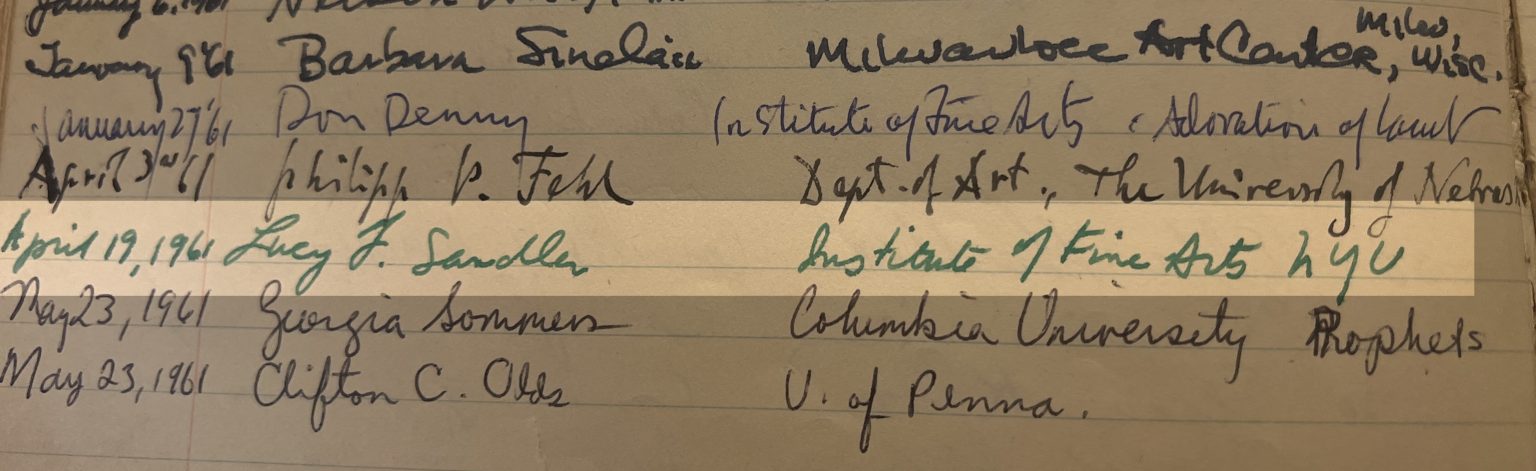 January 6, 1961
January 9 '61 Barbara Sinclair Milwaukee Art Center, Milw, Wisc.
January 27 '61 Don Denny Institute of Fine Arts Adoration of Lamb
April 3rd 61 Philipp P. Fehl Dept. of Art., The University of Nebras
April 19, 1961 Lucy F. Sandler Institute of Fine Arts NYU
May 23, 1961 Georgia Sommers Columbia University Prophets
May 23, 1961 Clifton C. Olds U. of Penna.